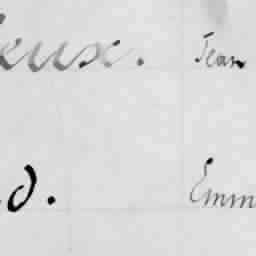 eux. Jean
d. Emm